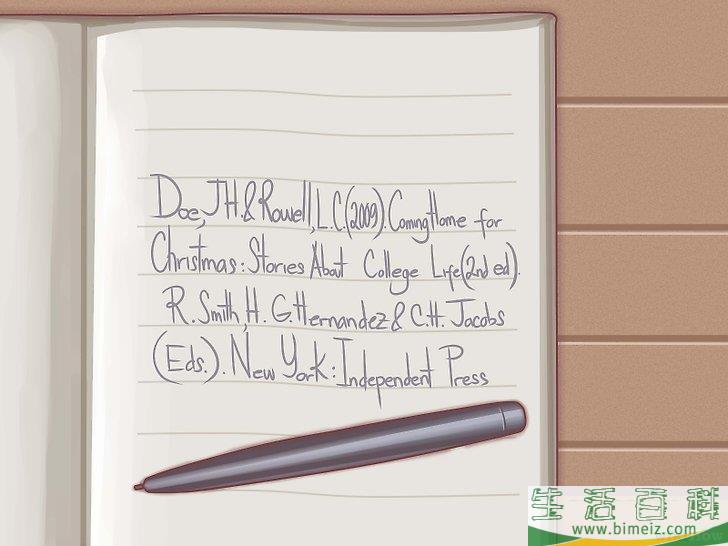 Doe, J.H. & Rowell, L.C. (2009). Coming Home for
Christmas: Stories About College Life (2nd ed).
R. Smith, H. G. Hernandez & C.H. Jacobs
(Eds.). New York: Independent Press
生活百科
www.bimeiz.com